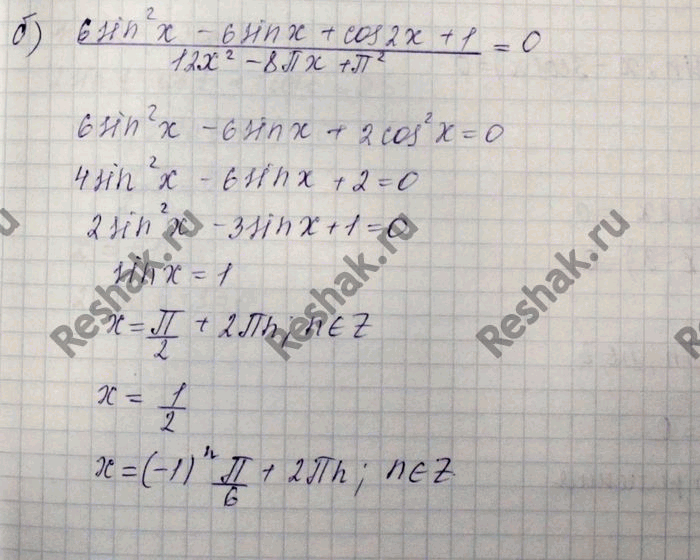 б) 6sin²x - 6sinx + cos2x + 1 / 12x² - 8πx + π² = 0
6sin²x - 6sinx + 2cos²x = 0
4sin²x - 6sinx + 2 = 0
2sin²x - 3sinx + 1 = 0
sinx = 1
x = π/2 + 2πn; n∈Z
x = 1/2
x = (-1)ⁿ π/6 + 2πn; n∈Z
Reshak.ru
Reshak.ru
Reshak.ru
Reshak.ru